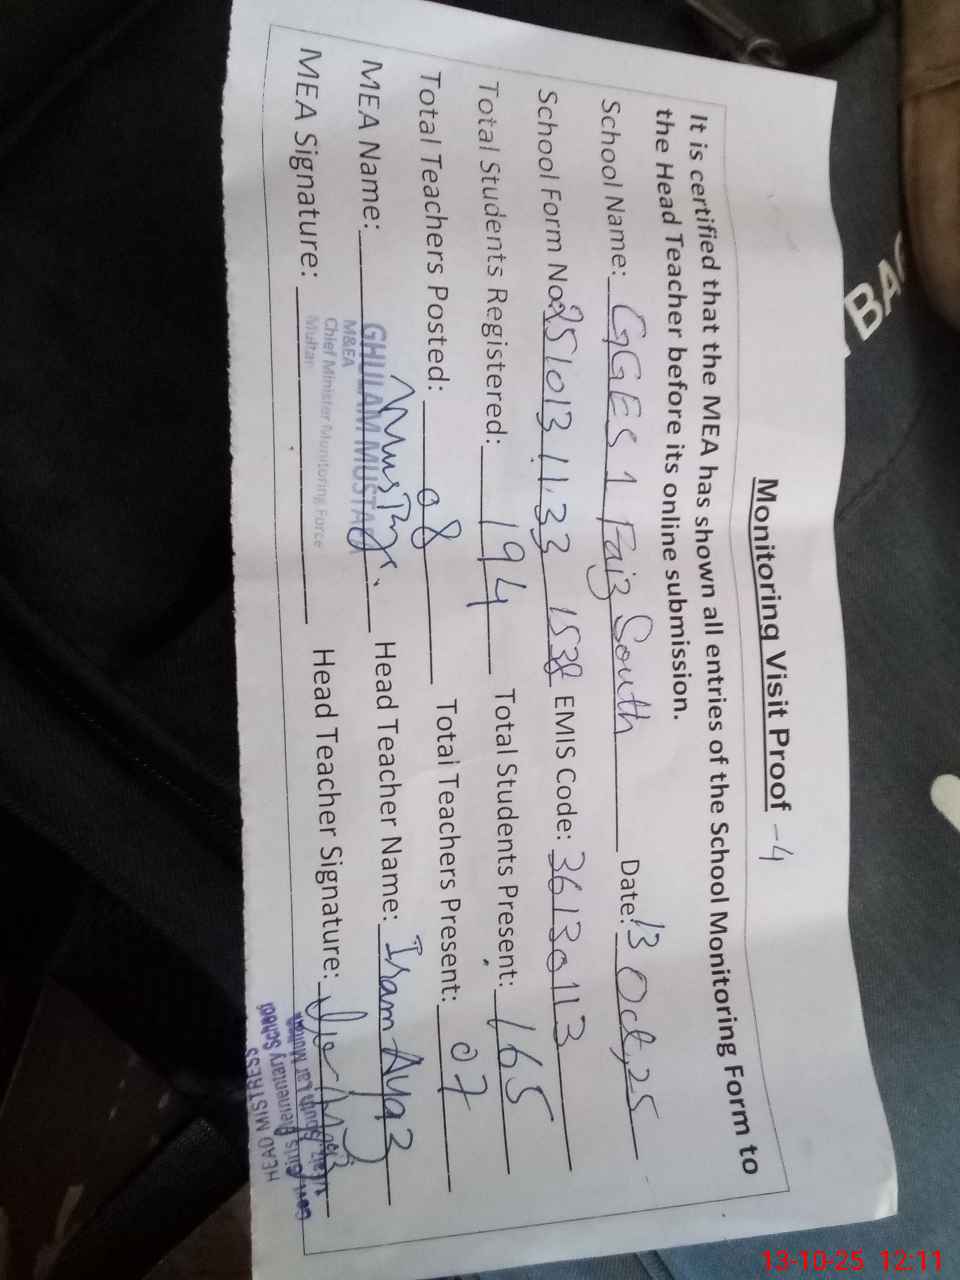 Monitoring Visit Proof -4
It is certified that the MEA has shown all entries of the School Monitoring Form to
the Head Teacher before its online submission.
School Name: GGES 1 Faiz South Date: 13 Oct, 25
School Form No: 251013 1133 1538 EMIS Code: 36130113
Total Students Registered: 194 Total Students Present: 165
Total Teachers Posted: 08 Total Teachers Present: 07
MEA Name: GHULAM MUSTAFA Head Teacher Name: Iram Ayaz
M&EA
Chief Minister Monitoring Force
Multan
MEA Signature: Head Teacher Signature:
HEAD MISTRESS
Govt. Girls Elementary School
BAG
13-10-25 12:11